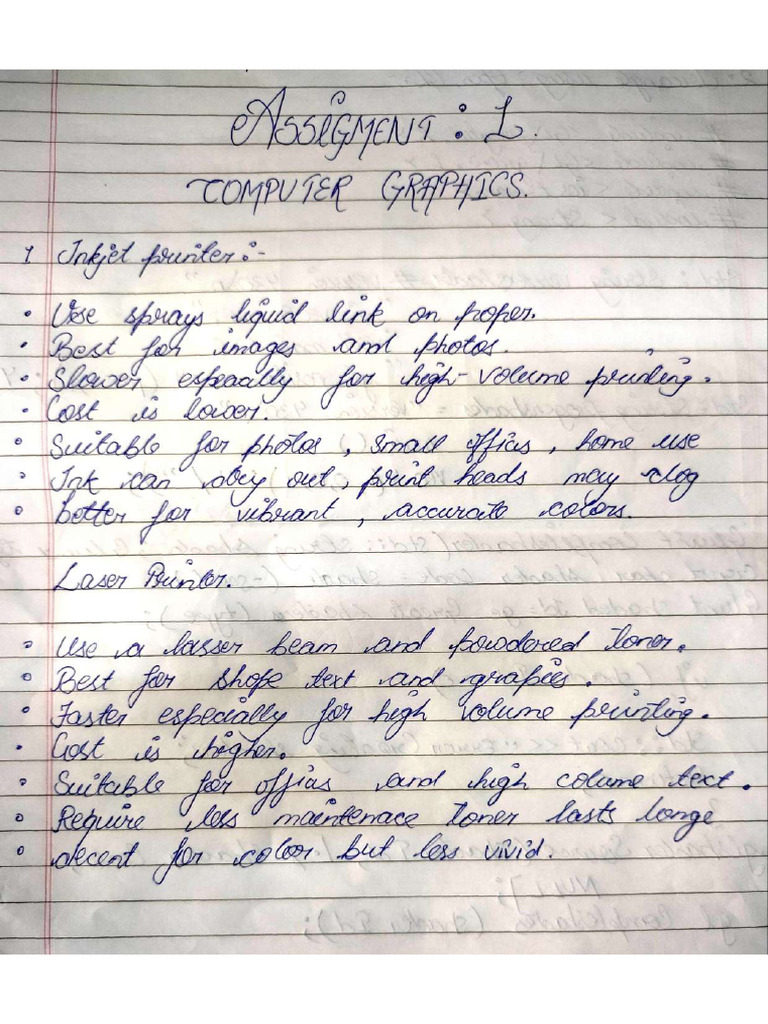 ASSIGMENT : 1.
COMPUTER GRAPHICS.
1 Inkjet printer :-
• Use sprays liquid link on poper.
• Best for images and photos.
• Slower especially for high-volume printing.
• Cost is lower.
• Suitable for photos, small offias, home use
• Ink can dry out, print heads may clog
• better for vibrant, accurate colors.
Laser Printer.
• Use a lasser beam and powdered toner.
• Best for shope text and grapies.
• Faster especially for high volume printing.
• Cost is higher.
• Suitable for offias and high column text.
• Require less maintenace toner lasts longe
• decent for color but less vivid.